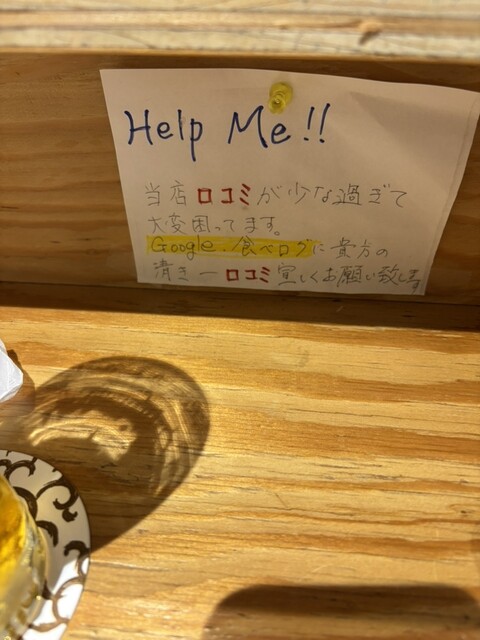 Help Me!!
当店口コミが少な過ぎて
大変困ってます。
Google 食べログに貴方の
清き一口コミ宜しくお願い致します